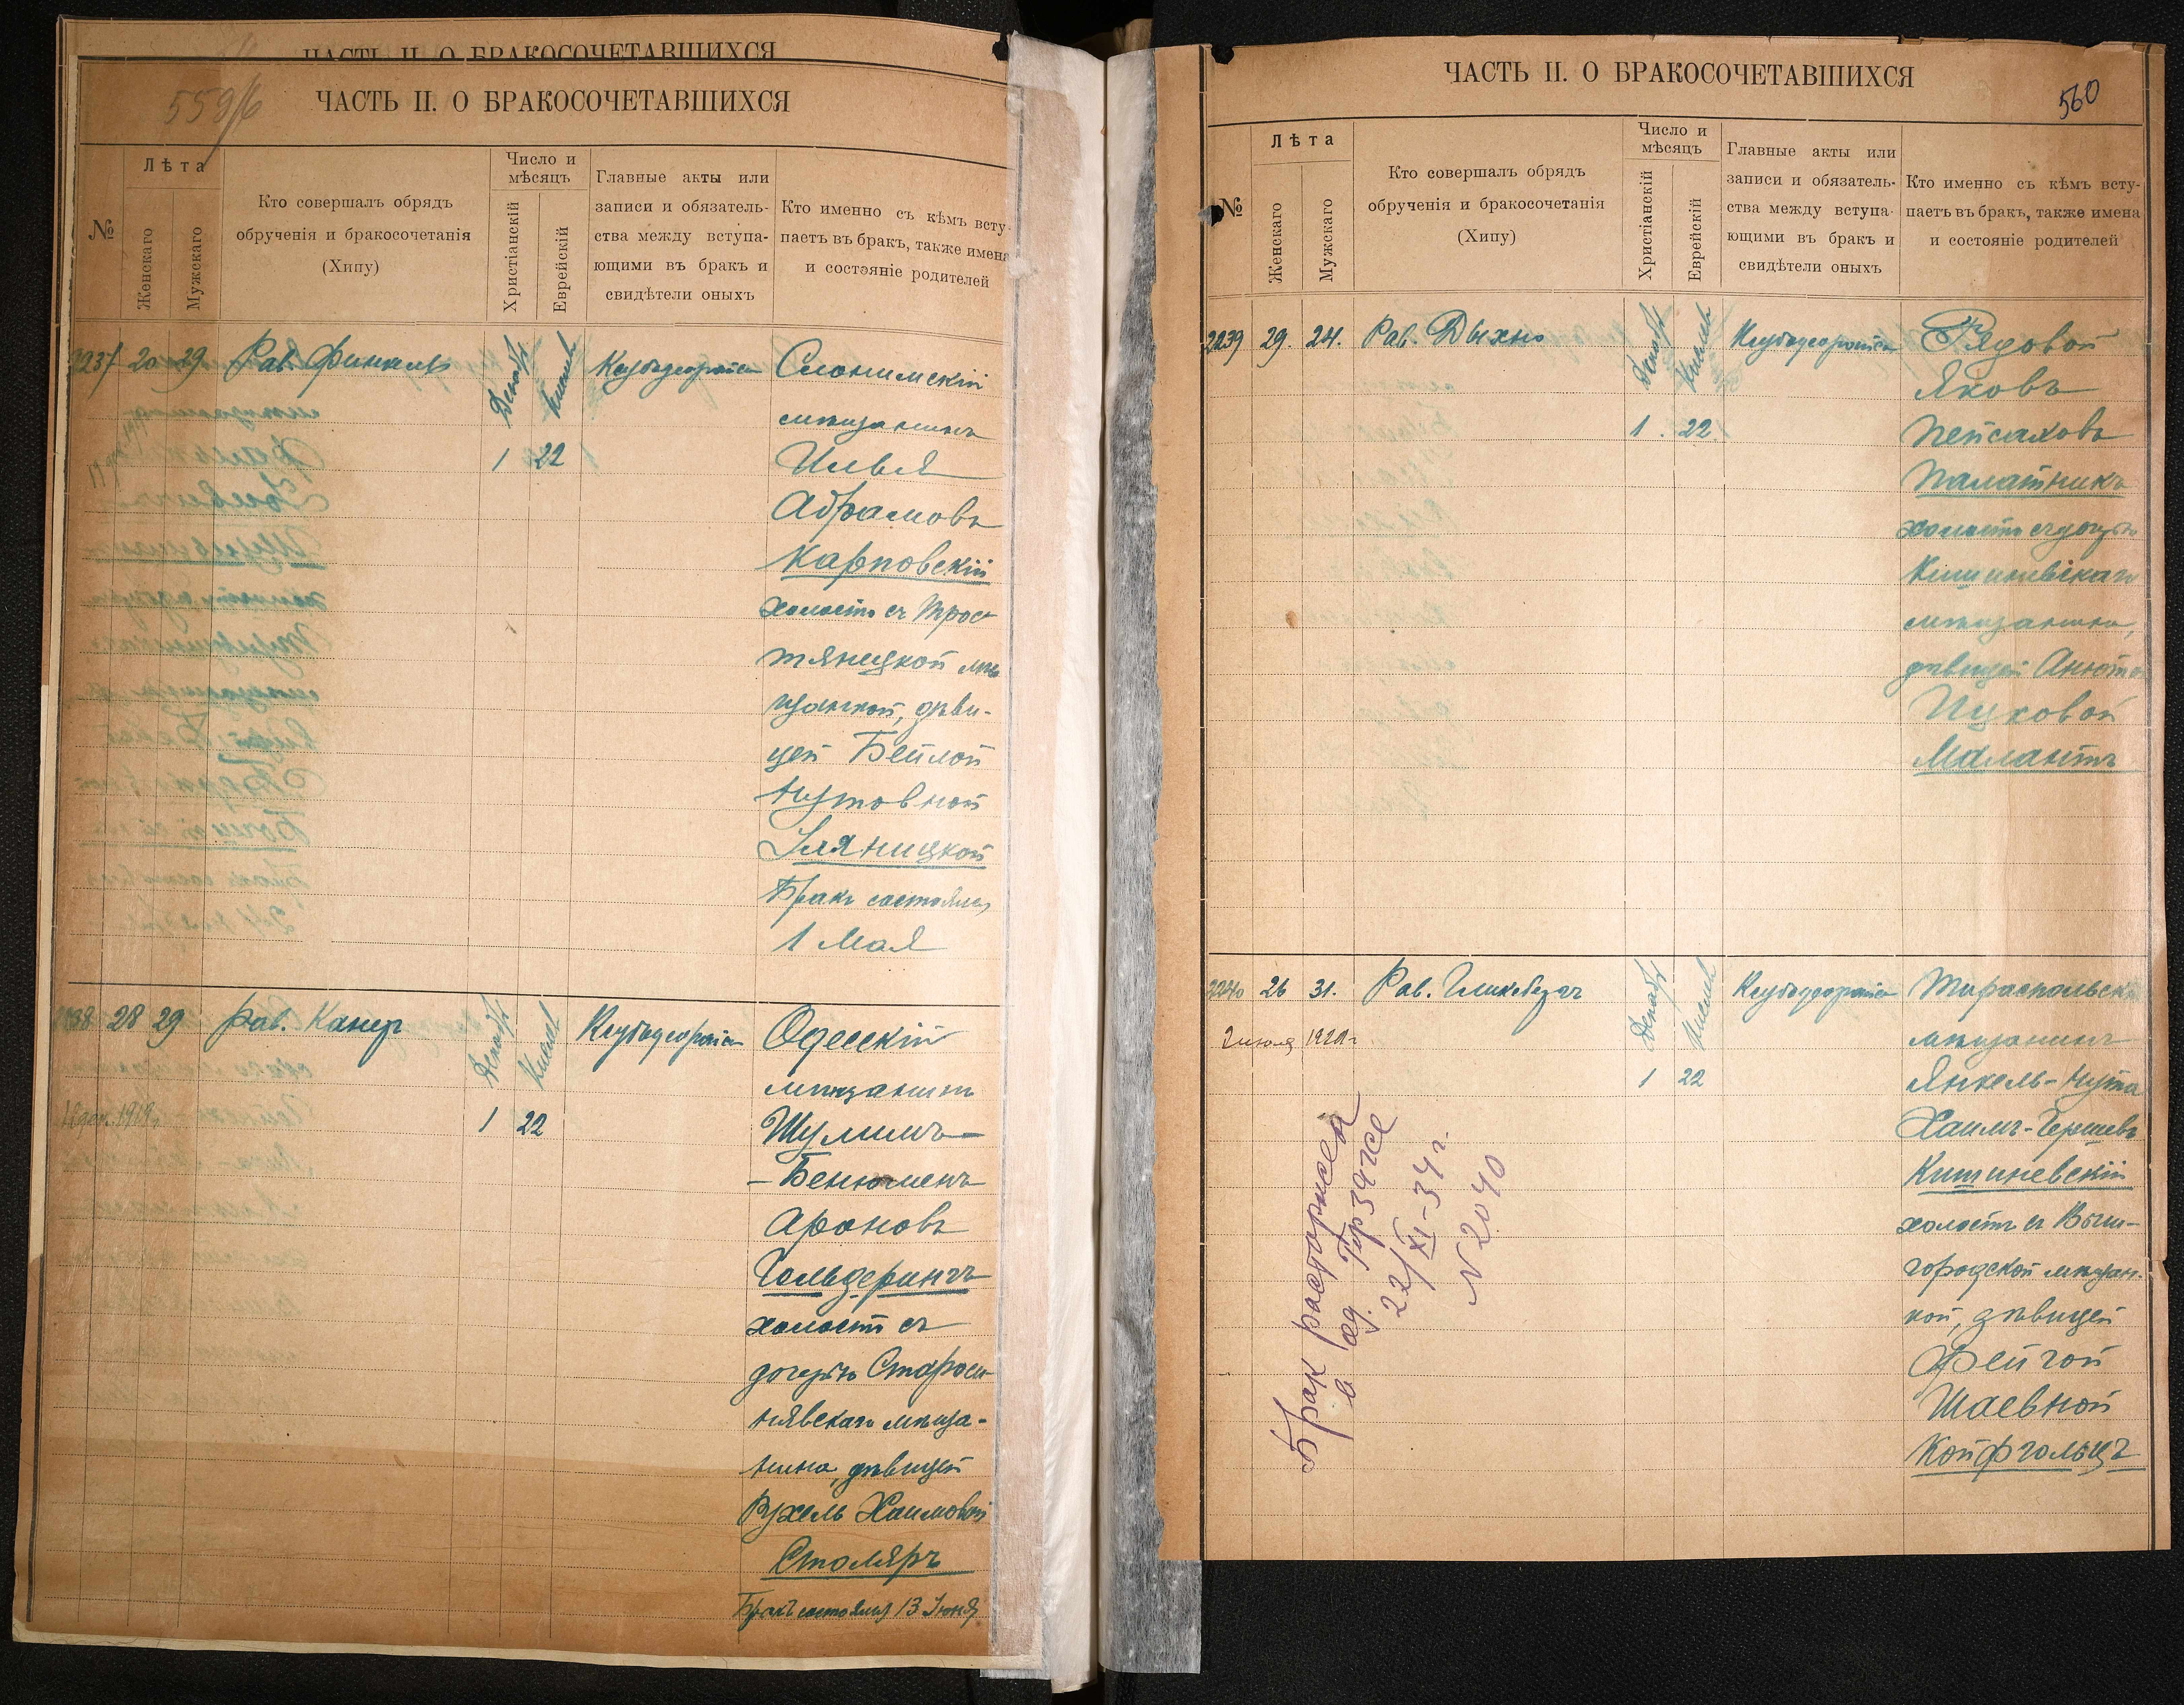 ЧАСТЬ II. О БРАКОСОЧЕТАВШИХСЯ
559/6
ЧАСТЬ II. О БРАКОСОЧЕТАВШИХСЯ
№
Лѣта
Женскаго
Мужскаго
Кто совершалъ обрядъ
обрученія и бракосочетанія
(Хипу)
Число и
мѣсяцъ
Христіанскій
Еврейскій
Главные акты или
записи и обязатель-
ства между вступа-
ющими въ бракъ и
свидѣтели оныхъ
Кто именно съ кѣмъ всту-
паетъ въ бракъ, также имена
и состояніе родителей
2237 20 29 Рав. Финкель
Декабрь
Кислевъ
1 22
Слонимскій
мѣщанинъ
Илья
Абрамовъ
Карповскій
холостъ съ Трос-
тянецкой мѣ
щанкой, дѣви-
цей Бейлой
Нутовной
Уляницкой
Бракъ состоялся
1 Мая
2238 28 29 Рав. Канер
Декабрь
Кислевъ
1 22
Одесскій
мѣщанинъ
Шулимъ-
-Бенюменъ
Ароновъ
Гольдерингъ
холостъ съ
дочерью Староси-
нявскаго мѣща-
нина, дѣвицей
Рухель Хаимовой
Столяръ
Бракъ состоялся 13 Іюня
ЧАСТЬ II. О БРАКОСОЧЕТАВШИХСЯ
560
№
Лѣта
Женскаго
Мужскаго
Кто совершалъ обрядъ
обрученія и бракосочетанія
(Хипу)
Число и
мѣсяцъ
Христіанскій
Еврейскій
Главные акты или
записи и обязатель-
ства между вступа-
ющими въ бракъ и
свидѣтели оныхъ
Кто именно съ кѣмъ всту-
паетъ въ бракъ, также имена
и состояніе родителей
2239 29. 24. Рав. Дыхно
Декабрь
Кислевъ
1. 22.
Рядовой
Яковъ
Пейсаховъ
Палатникъ
холостъ съ дочерью
Кишиневскаго
мѣщанина,
дѣвицей Анютой
Ицковой
Малантъ
2240 26 31. Рав.
Декабрь
Кислевъ
1 22
Тираспольскій
мѣщанинъ
Янкель-Нута
Хаимъ-Гершевъ
Кишиневскій
холостъ съ Выш-
городской мѣщан-
кой, дѣвицей
Фейгой
Шаевной
Койфгольцъ
Брак расторжен
в од. Гор ЗАГСе
22/XI-34 г.
N 2040